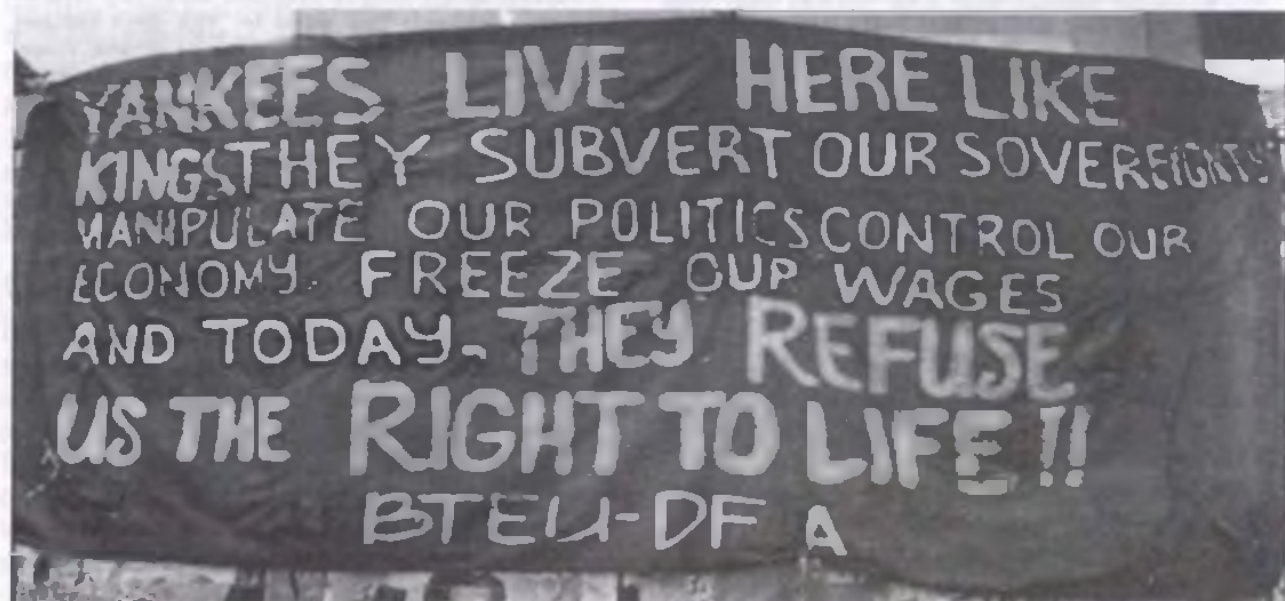 YANKEES LIVE HERE LIKE
KINGS THEY SUBVERT OUR SOVEREIGNTY
MANIPULATE OUR POLITICS CONTROL OUR
ECONOMY. FREEZE OUR WAGES
AND TODAY- THEY REFUSE
US THE RIGHT TO LIFE!!
BTEU-DF A